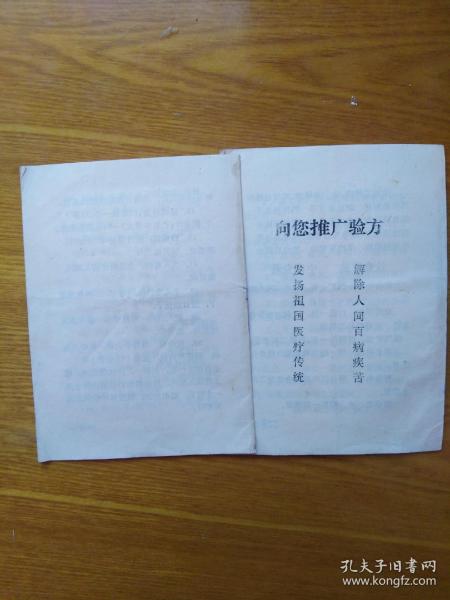 向您推广验方
发扬祖国医疗传统
解除人间百病疾苦
孔夫子旧书网
www.kongfz.com